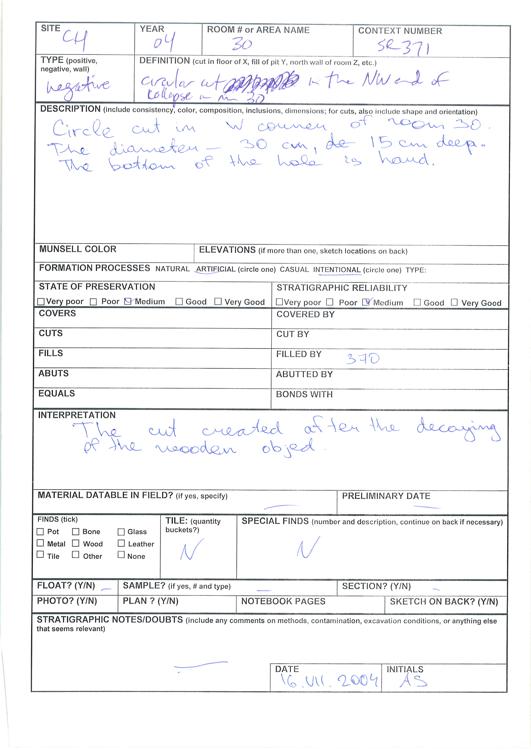 SITE CH
YEAR 04
ROOM # or AREA NAME 30
CONTEXT NUMBER SR 371
TYPE (positive, negative, wall) negative
DEFINITION (cut in floor of X, fill of pit Y, north wall of room Z, etc.)
circular cut in the NW end of
collapse in rm 30
DESCRIPTION (include consistency, color, composition, inclusions, dimensions; for cuts, also include shape and orientation)
Circle cut in W counner of room 30.
The diameter - 30 cm, de 15 cm deep.
The bottom of the hole is hard.
MUNSELL COLOR
ELEVATIONS (if more than one, sketch locations on back)
FORMATION PROCESSES NATURAL ARTIFICIAL (circle one) CASUAL INTENTIONAL (circle one) TYPE:
STATE OF PRESERVATION
STRATIGRAPHIC RELIABILITY
Very poor Poor Medium Good Very Good
Very poor Poor Medium Good Very Good
COVERS
COVERED BY
CUTS
CUT BY
FILLS
FILLED BY 370
ABUTS
ABUTTED BY
EQUALS
BONDS WITH
INTERPRETATION
The cut created after the decaying
of the wooden objed.
MATERIAL DATABLE IN FIELD? (if yes, specify) —
PRELIMINARY DATE —
FINDS (tick)
Pot Bone Glass
Metal Wood Leather
Tile Other None
TILE: (quantity buckets?) N
SPECIAL FINDS (number and description, continue on back if necessary)
N
FLOAT? (Y/N) —
SAMPLE? (if yes, # and type) —
SECTION? (Y/N) —
PHOTO? (Y/N)
PLAN ? (Y/N)
NOTEBOOK PAGES
SKETCH ON BACK? (Y/N)
STRATIGRAPHIC NOTES/DOUBTS (include any comments on methods, contamination, excavation conditions, or anything else
that seems relevant)
—
DATE 16.VII.2004
INITIALS AS